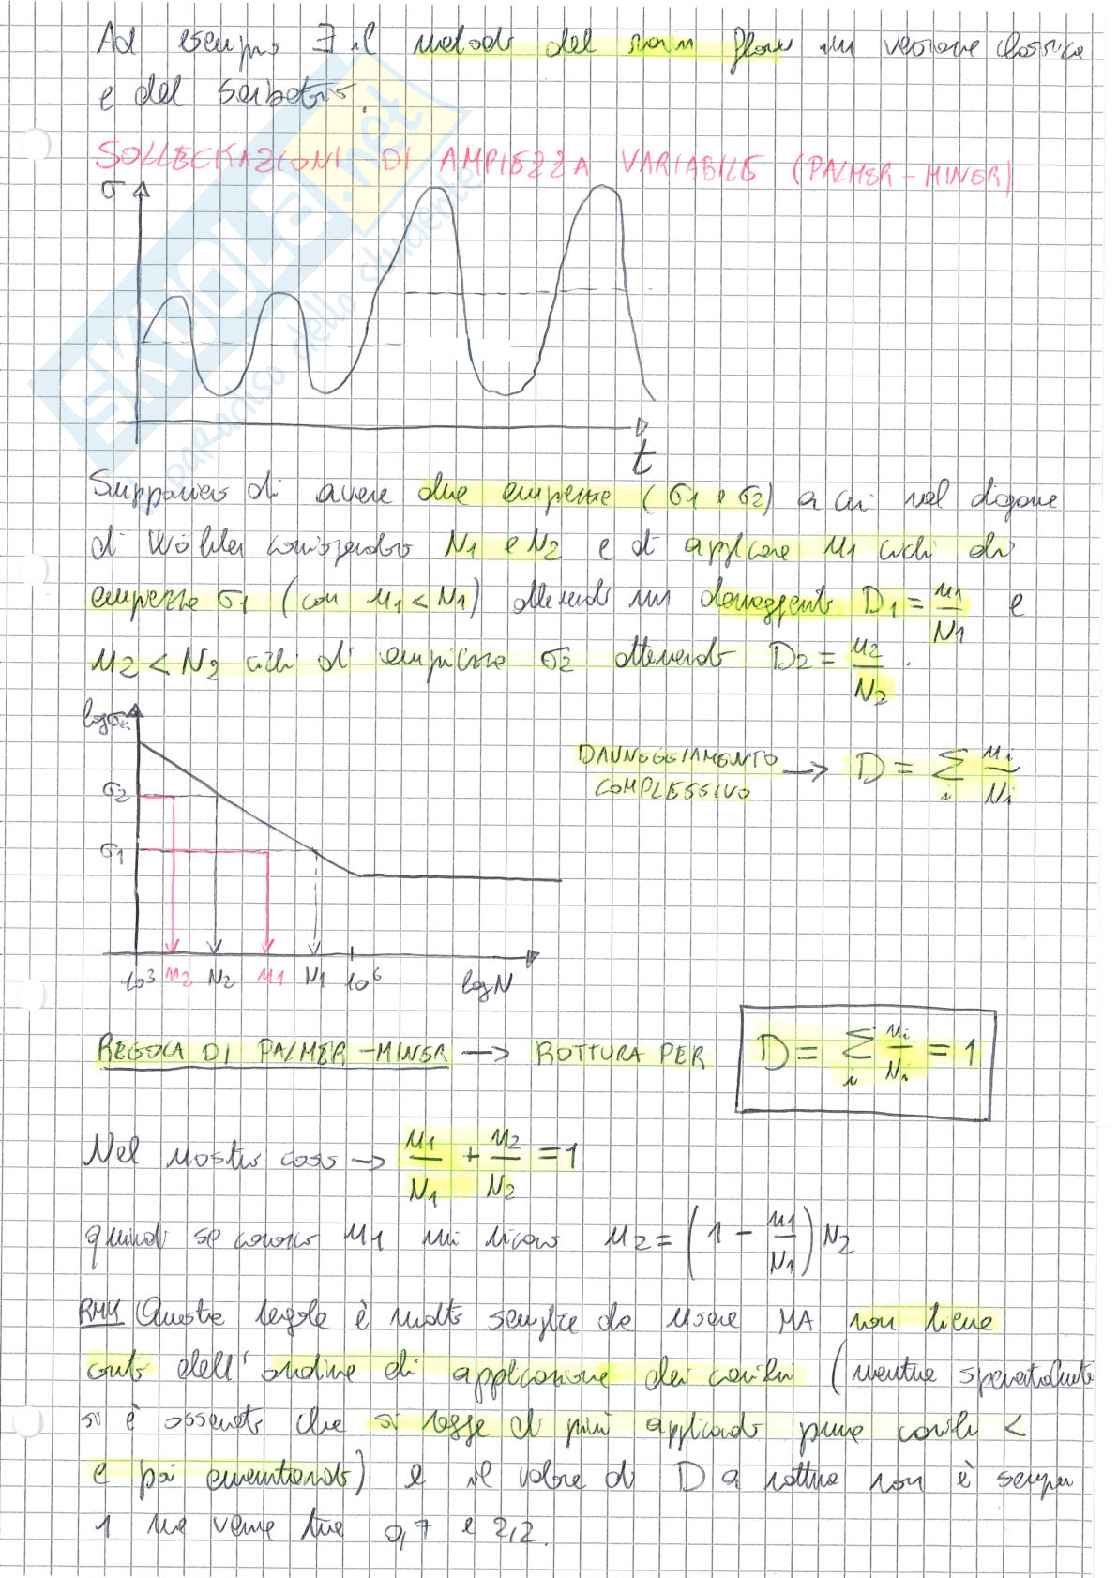 Ad esempio ∃ il metodo del rain flow in versione classica
e del serbatoio.
SOLLECITAZIONI DI AMPIEZZA VARIABILE (PALMER-MINER)
σ
t
Supponiamo di avere due ampiezze (σ1 e σ2) a cui nel diagramma
di Wöhler corrispondono N1 e N2 e di applicare n1 cicli di
ampiezza σ1 (con n1 < N1) ottenendo un danneggiamento D1 = n1/N1 e
n2 < N2 cicli di ampiezza σ2 ottenendo D2 = n2/N2.
log σa
σ2
σ1
10^3 n2 N2 n1 N1 10^6 log N
DANNEGGIAMENTO
COMPLESSIVO → D = Σi ni/Ni
REGOLA DI PALMER-MINER → ROTTURA PER D = Σi ni/Ni = 1
Nel nostro caso → n1/N1 + n2/N2 = 1
quindi se conosco n1 mi ricavo n2 = (1 - n1/N1) N2
Questa regola è molto semplice da usare MA non tiene
conto dell'ordine di applicazione dei carichi (mentre sperimentalmente
si è osservato che si regge di più applicando prima carichi <
e poi aumentando) e il valore di D a rottura non è sempre
1 ma varia tra 0,7 e 2,2.
SKUOLA.net
paradiso dello studente